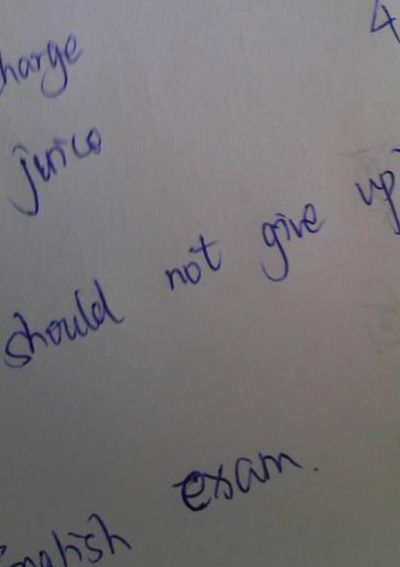 harge 4
juice
should not give up
English exam.